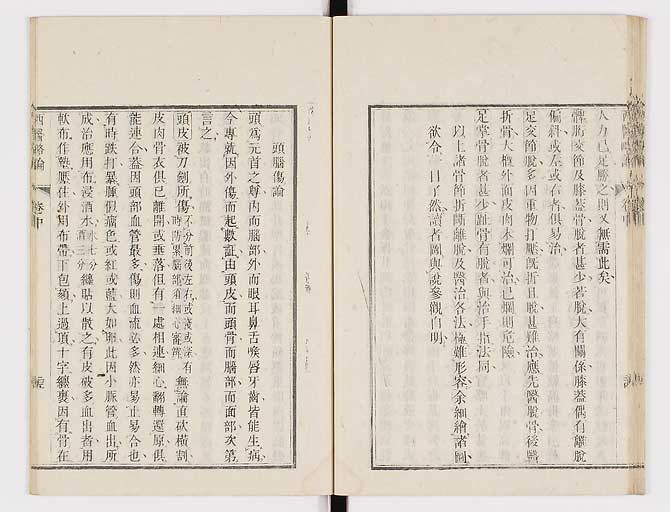 人力已足勝之則又無需此矣
髀胯交節及膝蓋骨脫者甚少若脫大有關係膝蓋偶有離脫
偏斜或左或右者俱易治
足交節脫多因重物打壓旣折且脫甚難治應先醫脫骨後醫
折骨大槪外面皮肉未爛可治已爛則危險
足掌骨脫者甚少趾骨有脫者與治手指法同
以上諸骨節折斷離脫及醫治各法極難形容余細繪諸圖
欲令一目了然讀者圖與說參觀自明
頭腦傷論
頭爲元首之尊內而腦部外而眼耳鼻舌喉唇牙齒皆能生病
今專就因外傷而起數証由頭皮而頭骨而腦部而面部次第
言之
頭皮被刀劍所傷不分前後左右或淺或深有時防累腦部須細心審辨無論直砍橫割
皮肉骨衣俱已離開或垂落但有一處相連細心翻轉還原俱
能連合蓋因頭部血管最多傷則血流必多然亦易止易合也
有時跌打暴腫似瘤色或紅或藍大如卵此因小脈管血出所
成治應用布浸酒水水七分酒三分纏貼以散之有皮破多血出者用
軟布作墊壓住外用布帶下包頦上過頂十字纏裹因有骨在
西醫略論
卷中